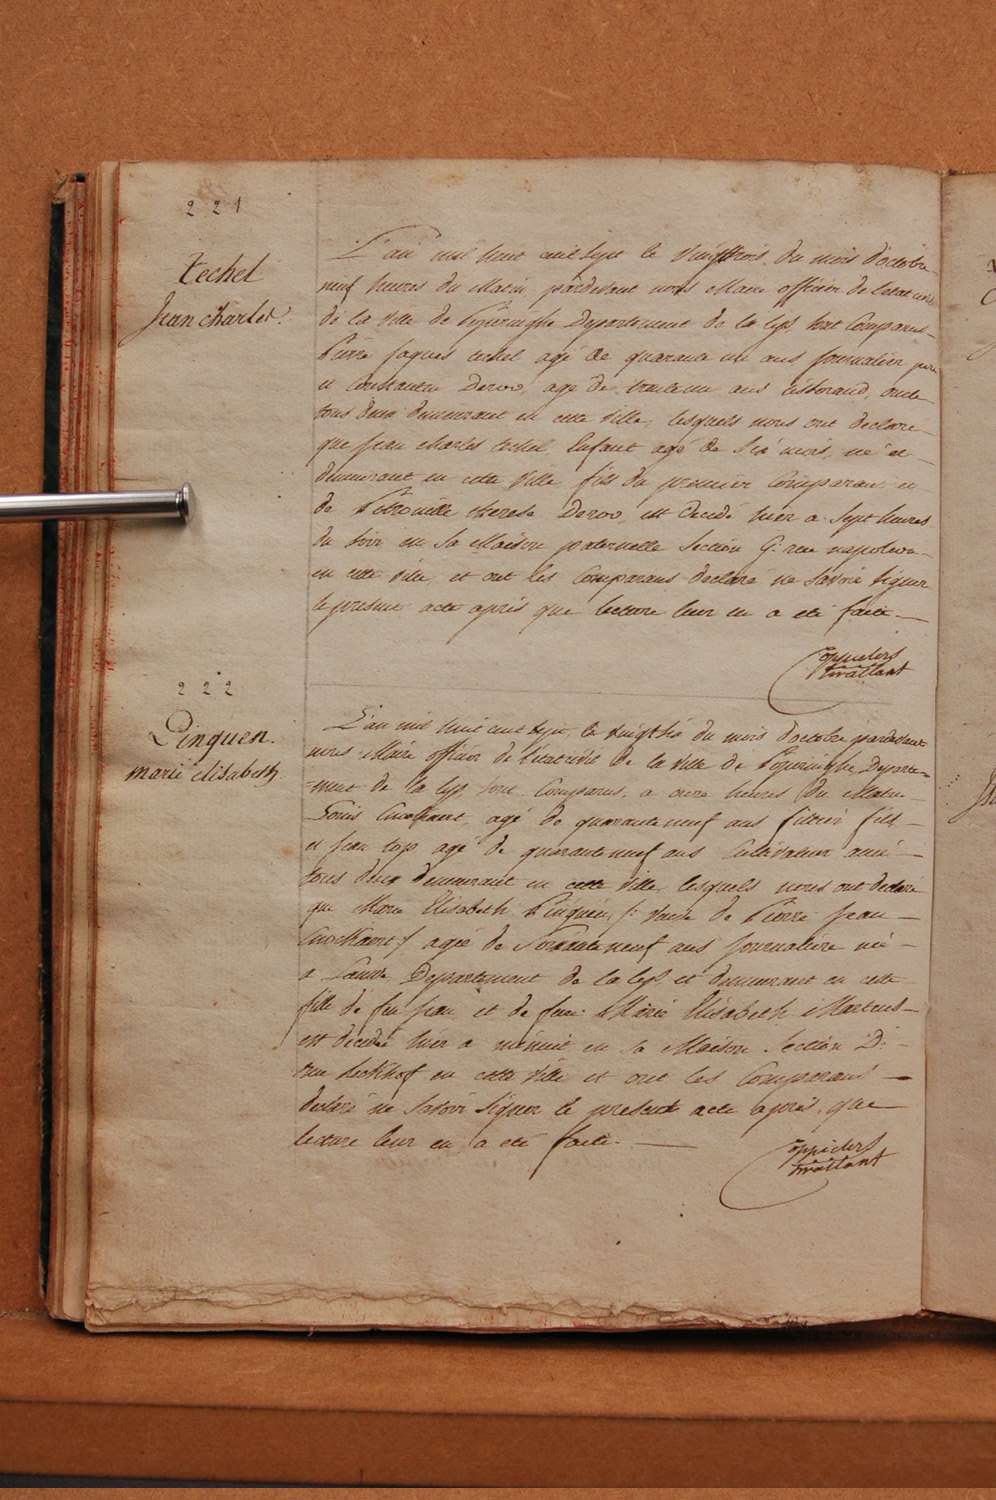 221
Techel
Jean Charles.
L'an mil huit cent sept le vingttrois du mois d'octobre
neuf heures du Matin, pardevant nous Maire officier de l'etat civil
de la Ville de Poperinghe Departement de la Lys, sont Comparus
Pierre Jaques techel agé de quarante un ans journalier pere
et Constantin Deroo, age de trente un ans tisserand, oncle
tous deux demeurant en cette Ville, lesquels nous ont declaré
que Jean Charles techel Enfant agé de Six mois, né et
demeurant en cette Ville fils du premier Comparant et
de Petronille therese Deroo, est decedé hier a Sept heures
du Soir en Sa Maison paternelle Section G: rue napoleon
en cette Ville, et ont les Comparans declaré ne Savoir Signer
le present acte après que lecture leur en a eté faite
222
Pinquen.
marie elisabeth
L'an mil huit cent Sept, le vingtsix du mois d'octobre pardevant
nous Maire officier de l'etat civil de la Ville de Poperinghe Departe=
=ment de la Lys, sont Comparus, a onze heures du Matin
Louis agé de quaranteneuf ans fils
et Jean top agé de quaranteneuf ans Cultivateur ami
tous deux demeurant en cette Ville, lesquels nous ont declaré
que Marie Elisabeth Pinquen, /: Veuve de Pierre Jean
agée de Soixanteneuf ans journaliere née
a Departement de la Lys, et demeurant en cette
fille de feu Jean, et de feue Marie Elisabeth Martens
est decedée hier a minuit en sa Maison Section D:
rue en cette Ville et ont les Comparans
declaré ne Savoir Signer le present acte après que
lecture leur en a eté faite.